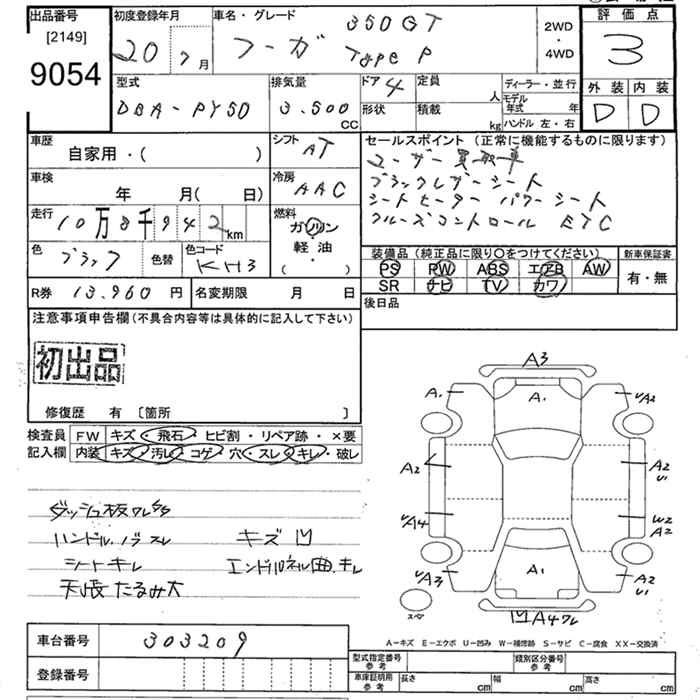 出品番号 初度登録年月 車名・グレード 350GT 2WD 評価点
[2149] 20 年 7 月 フーガ Type P ・ 3
9054 4WD
型式 排気量 ドア 4 定員 人 ディーラー・並行 外装 内装
DBA-PY50 3.500 CC 形状 積載 kg モデル年式 年 D D
ハンドル 左・右
車歴 シフト AT セールスポイント (正常に機能するものに限ります)
自家用・( ) ユーザー買取車
車検 冷房 AAC ブラックレザーシート
年 月( 日) シートヒーター パワーシート
走行 10万8千942km 燃料 ガソリン クルーズコントロール ETC
軽油
・
( )
色 ブラック 色替 色コード KH3 装備品 (純正品に限り○をつけてください) 新車保証書
PS PW ABS エアB AW 有・無
SR ナビ TV カワ
R券 13,960 円 名変期限 月 日 後日品
注意事項申告欄 (不具合内容等は具体的に記入して下さい)
初出品
修復歴 有 〔箇所 〕
検査員 FW キズ・飛石・ヒビ割・リペア跡・×要
記入欄 内装 キズ・汚レ・コゲ・穴・スレ・キレ・破レ
ダッシュ板ワレ
ハンドル スレ キズ 凹
シートキレ エンドパネル曲 キレ
天張たるみ大
A3
A1 A1 A2
A2 A2 U1
A4 W2 A2
A3 A1 A2 U1
スペア 凹 A4 ワレ
A-キズ E-エクボ U-凹み W-補修跡 S-サビ C-腐食 XX-交換済
車台番号 303209
登録番号
型式指定番号 参考 類別区分番号 参考
車庫証明用 参考 長さ cm 幅 cm 高さ cm